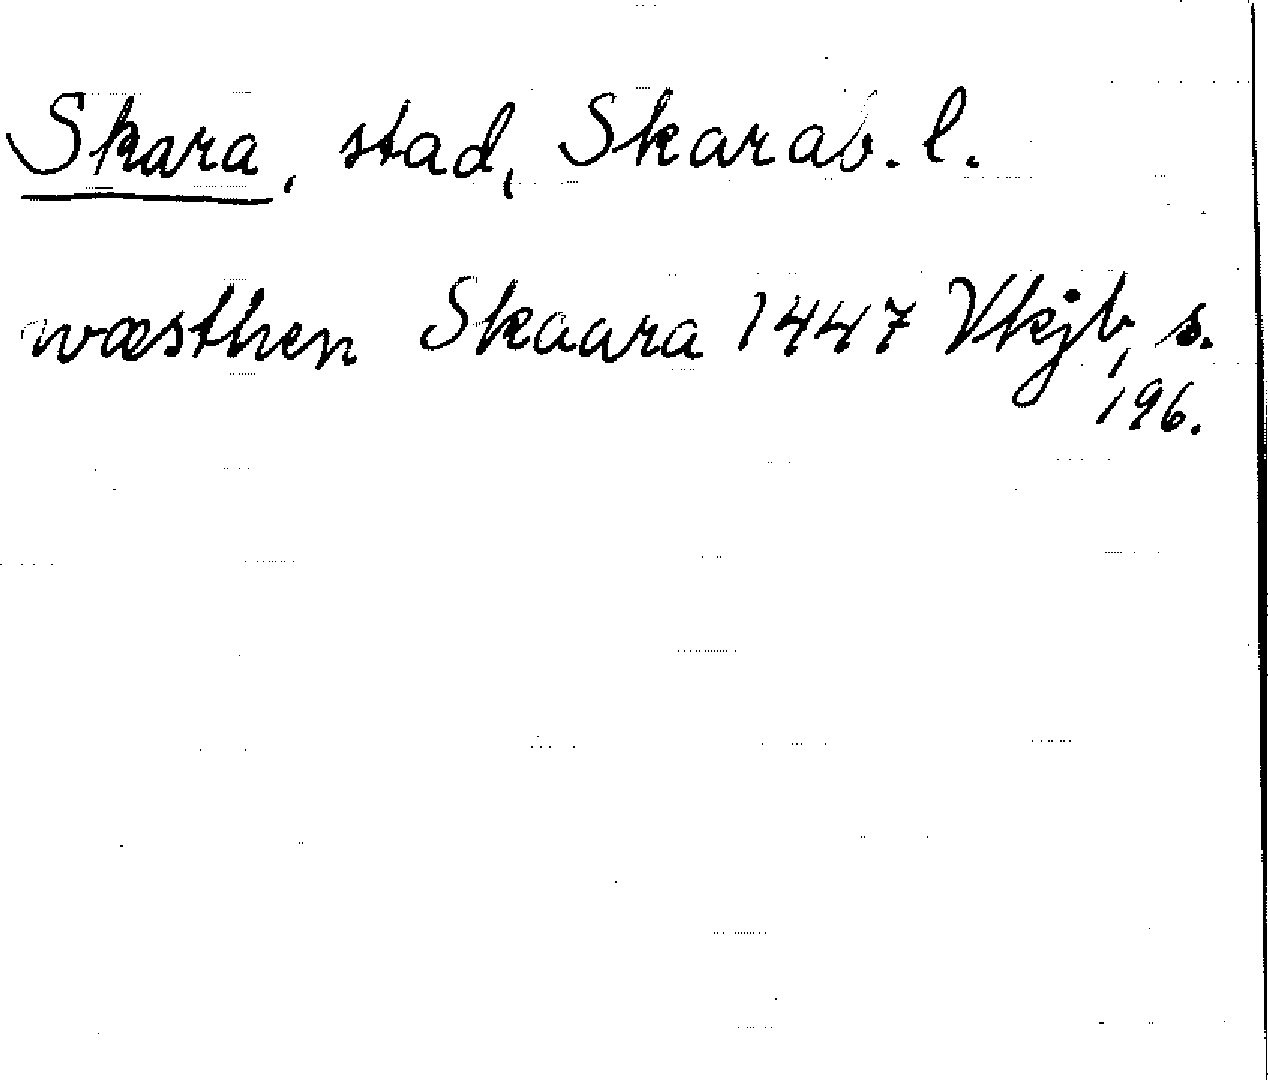 Skara, stad, Skarab. l.
wæsthen Skaara 1447 Vkjb, s.
196.